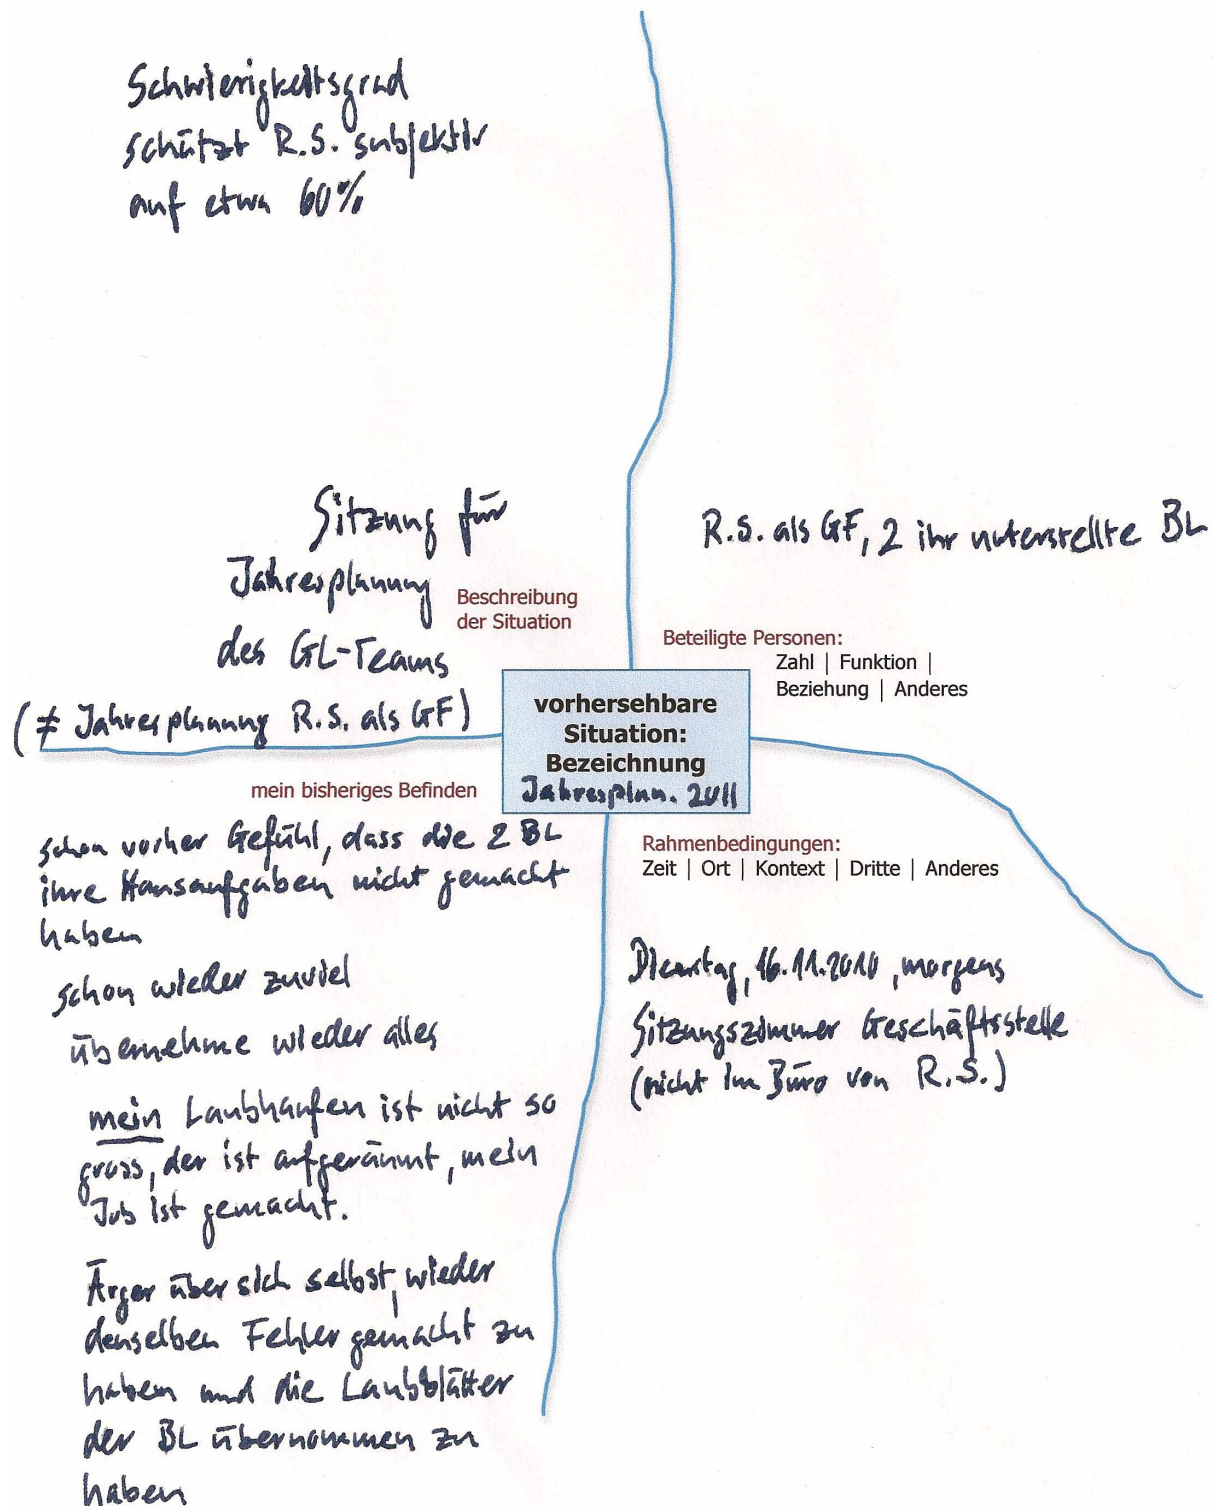 Schwierigkeitsgrad
schätzt R.S. subjektiv
auf etwa 60%
Sitzung für
Jahresplanung
des GL-Teams
(≠ Jahresplanung R.S. als GF)
Beschreibung
der Situation
R.S. als GF, 2 ihr unterstellte BL
Beteiligte Personen:
Zahl | Funktion |
Beziehung | Anderes
vorhersehbare
Situation:
Bezeichnung
Jahresplan. 2011
mein bisheriges Befinden
schon vorher Gefühl, dass die 2 BL
ihre Hausaufgaben nicht gemacht
haben
schon wieder zuviel
übernehme wieder alles
mein Laubhaufen ist nicht so
gross, der ist aufgeräumt, mein
Job ist gemacht.
Ärger über sich selbst, wieder
denselben Fehler gemacht zu
haben und die Laubblätter
der BL übernommen zu
haben
Rahmenbedingungen:
Zeit | Ort | Kontext | Dritte | Anderes
Dienstag, 16.11.2010, morgens
Sitzungszimmer Geschäftsstelle
(nicht im Büro von R.S.)